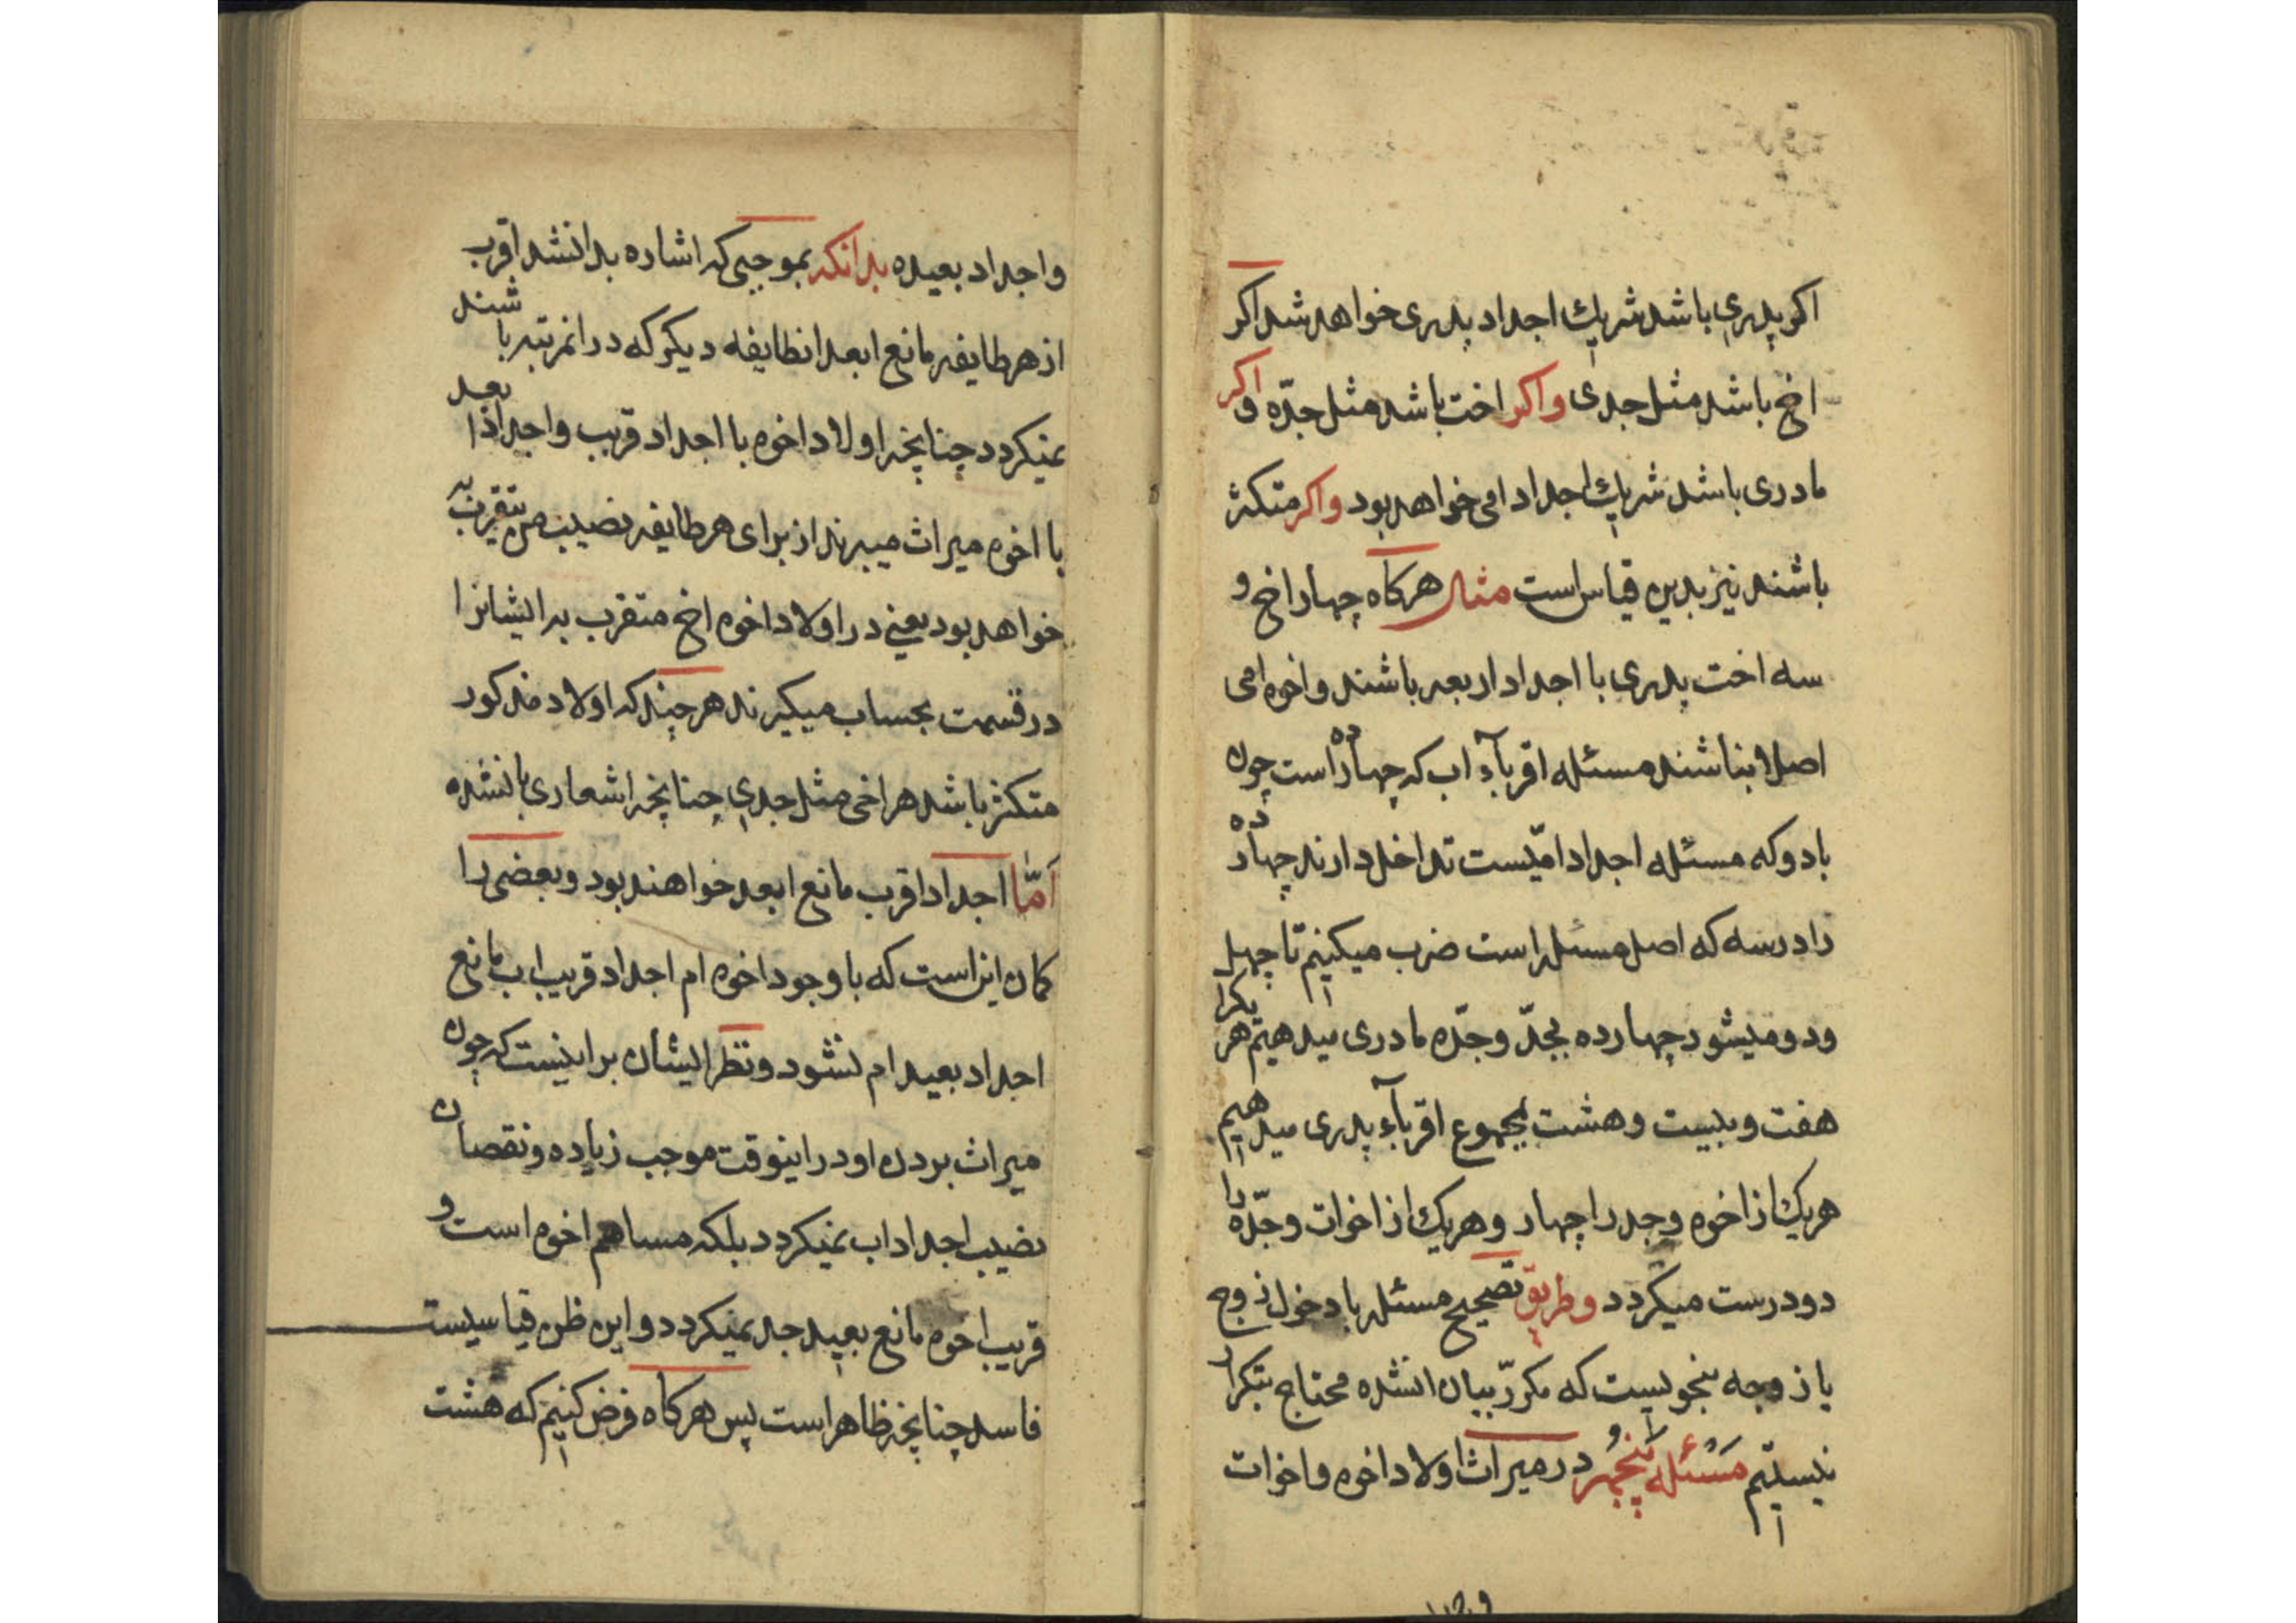 اکر پدری باشد شریک اجداد پدری خواهد شد اکر
اخ باشد مثل جدی واکر اخت باشد مثل جدّه و اکر
مادری باشد شریک اجداد امی خواهد بود واکر متکثر
باشند نیز بدین قیاس است مثال هرکاه چهار اخ و
سه اخت پدری با اجداد اربعه باشند و اخوه امی
اصلا نباشند مسئله اقربآء اب که چهارده است چون
با دو که مسئله اجداد امیّست تداخل دارند چهارده
را در سه که اصل مسئله است ضرب میکنیم تا چهل
ودو میشود چهارده بجدّ وجدّه مادری میدهیم هر یکرا
هفت و بیست و هشت بمجموع اقربآء پدری میدهیم
هریک از اخوه وجد را چهار وهریک از اخوات وجدّه را
دو درست میکردد وطریق تصحیح مسئله با دخول زوج
یا زوجه بنجویست که مکرّر بیان انشده محتاج بتکرار
نیستیم مسئله پنجم در میراث اولاد اخوه و اخوات
واجداد بعیده بدانکه بموجبی که اشاره بدانشد اقرب
از هر طایفه مانع ابعد انطایفه دیکر که در انمرتبه باشند
نمیکردد چنانچه اولاد اخوه با اجداد قریب واجداد ابعد
با اخوه میراث میبرند از برای هر طایفه نصیب من یتقرب به
خواهد بود یعنی در اولاد اخوه اخ متقرب به ایشانرا
در قسمت بحساب میکیرند هرچند که اولاد مذکور
متکثر باشد هر اخی مثل جدی چنانچه اشعاری بانشده
امّا اجداد اقرب مانع ابعد خواهند بود وبعضی را
کمان این است که با وجود اخوه ام اجداد قریب اب مانع
اجداد بعید ام نشود ونظر ایشان بر اینست که چون
میراث بردن او در اینوقت موجب زیاده ونقصان
نصیب اجداد اب نمیکردد بلکه مساهم اخوه است و
قریب اخوه مانع بعید جد نمیکردد و این ظن قیاسیست
فاسد چنانچه ظاهر است پس هرکاه فرض کنیم که هشت